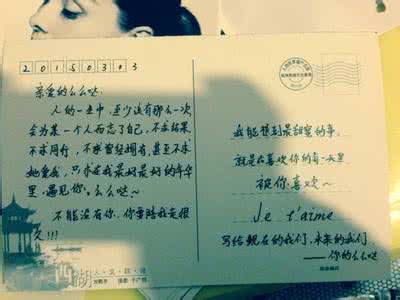 20150303
亲爱的么么哒:
人的一生中,至少该有那么一次
会为某一个人而忘了自己,不求结果
不求同行,不求曾经拥有,甚至不求
她爱我,只求在我最好最好的年华
里,遇见你。么么哒~
不能没有你,你要陪我走很
久!!!
我能想到最甜蜜的事。
就是在喜欢你的每一天里
被你喜欢~
Je t'aime
写给现在的我们,未来的我们
——你的么么哒
湖
人·文·四·季